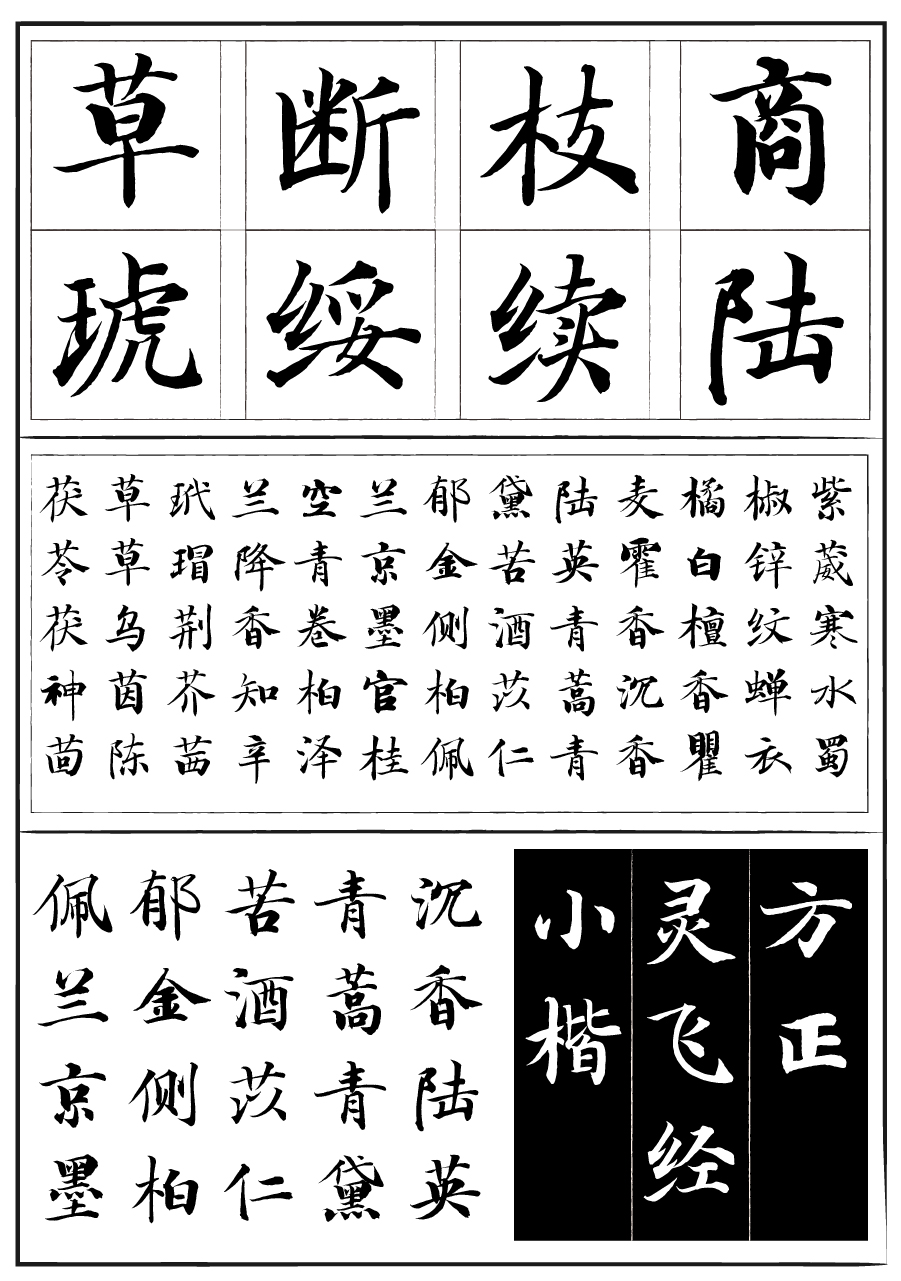 商陆
枝续
断绥
草琥
紫葳寒水蜀
椒锌纹蝉衣
橘白檀香瞿
麦霍香沉香
陆英青蒿青
黛苦酒茨仁
郁金侧柏佩
兰京墨官桂
空青卷柏泽
兰降香知辛
玳瑁荆芥茜
草草乌茵陈
茯苓茯神茴
方正
灵飞经
小楷
沉香陆英
青蒿青黛
苦酒茨仁
郁金侧柏
佩兰京墨